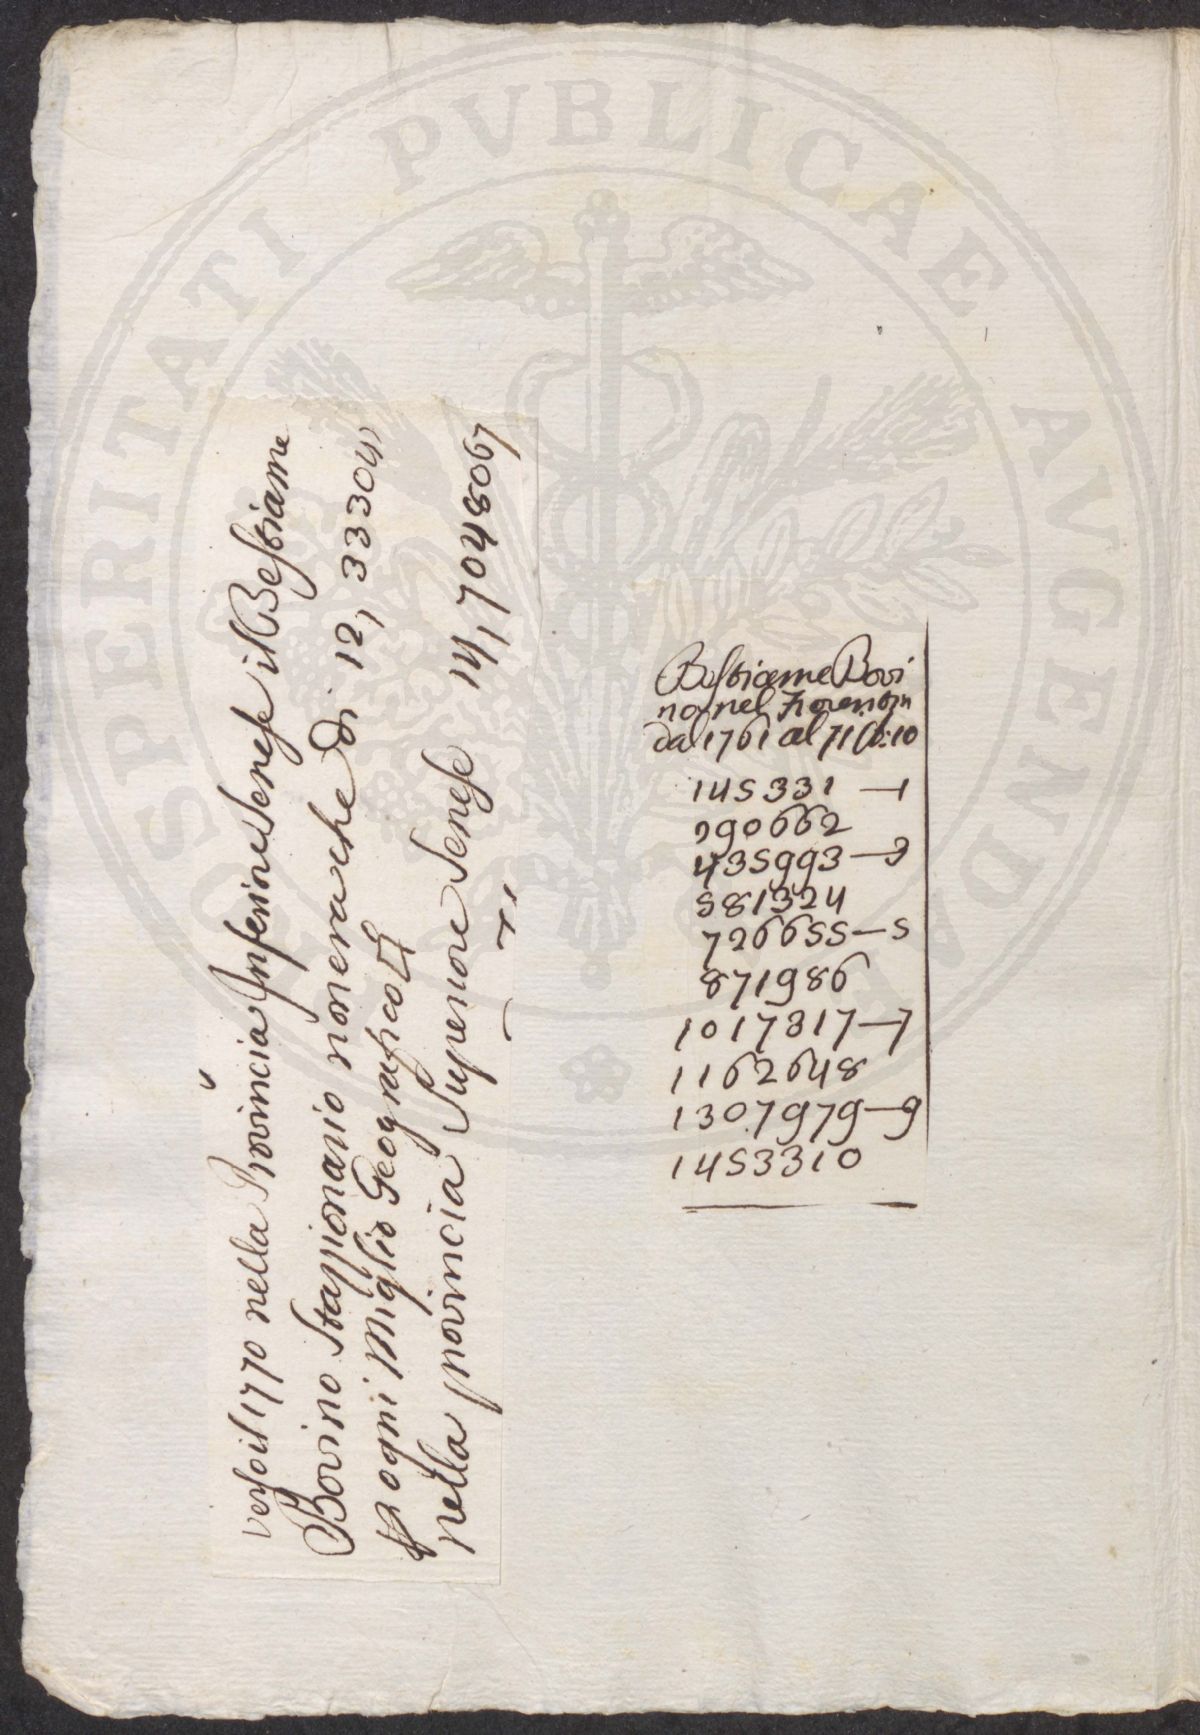 verso il 1770 nella Provincia Inferiore Senese il Bestiame
Bovino stazzionario non era che di 12, 33304
ogni Miglio Geografico
nella provincia Superiore Senese 14, 7048067
Bestiame Bovi
no nel Fiorentin
dal 1761 al 71
145331 — 1
290662
435993 — 3
581324
726655 — 5
871986
1017317 — 7
1162648
1307979 — 9
1453310
PROSPERITATI PVBLICAE AVGENDAE